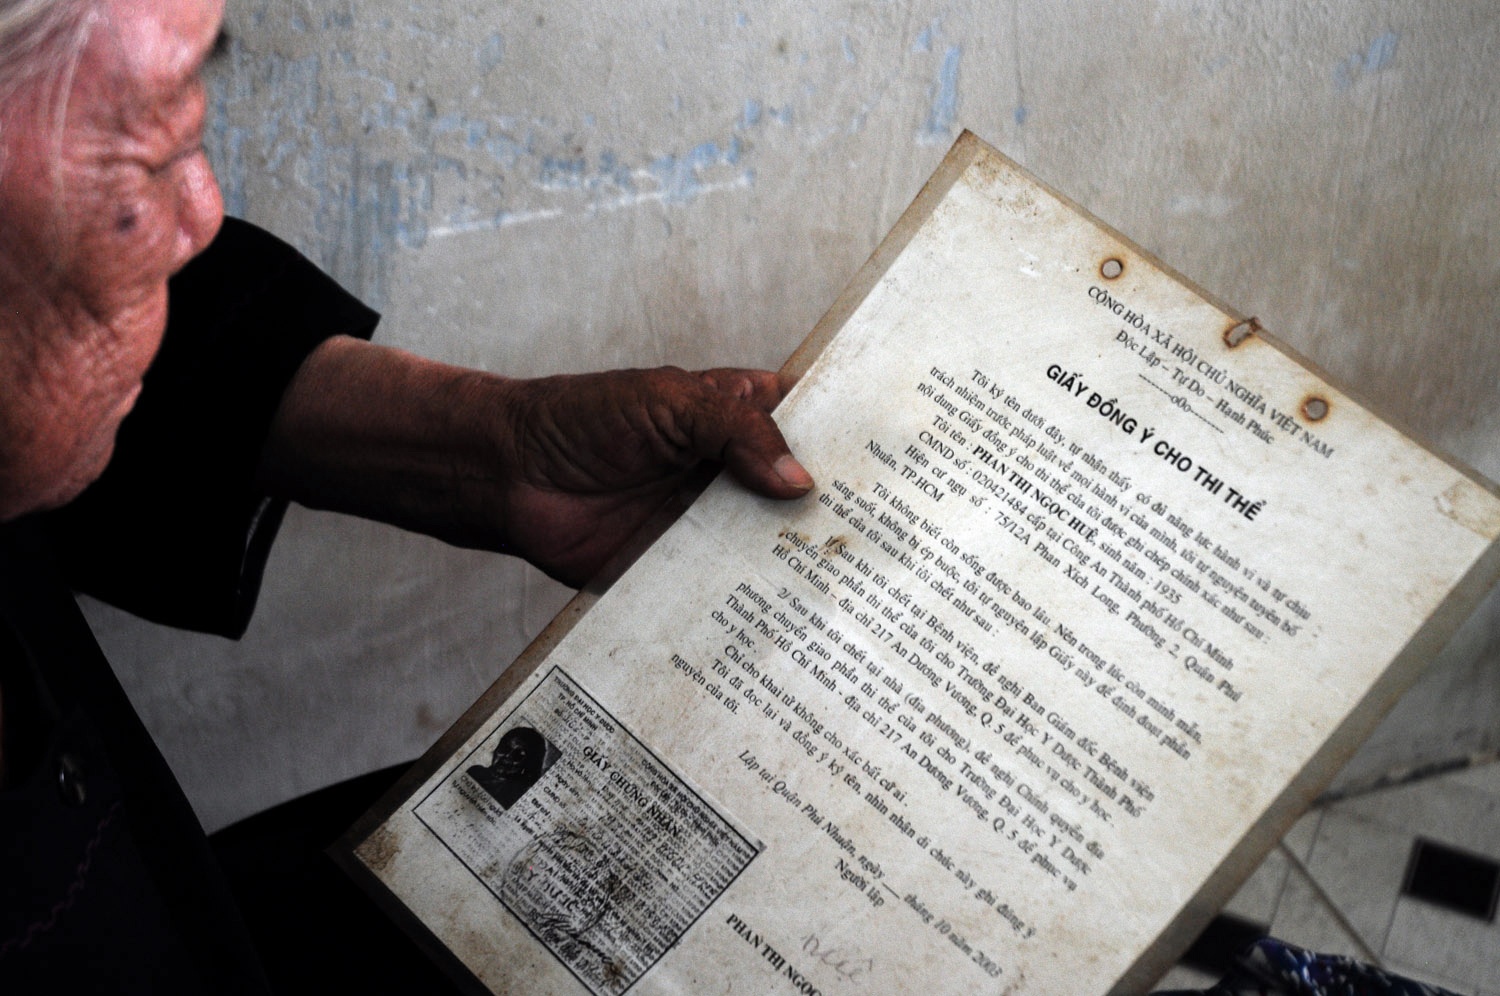 CỘNG HÒA XÃ HỘI CHỦ NGHĨA VIỆT NAM
Độc Lập – Tự Do – Hạnh Phúc
--------o0o--------
GIẤY ĐỒNG Ý CHO THI THỂ
Tôi ký tên dưới đây, tự nhận thấy có đủ năng lực hành vi và tự chịu
trách nhiệm trước pháp luật về mọi hành vi của mình, tôi tự nguyện tuyên bố
nội dung Giấy đồng ý cho thi thể của tôi được ghi chép chính xác như sau :
Tôi tên : PHAN THỊ NGỌC HUỆ, sinh năm : 1935
CMND số : 020421484 cấp tại Công An Thành phố Hồ Chí Minh
Hiện cư ngụ số : 75/12A Phan Xích Long, Phường 2, Quận Phú
Nhuận, TP.HCM
Tôi không biết còn sống được bao lâu. Nên trong lúc còn minh mẫn,
sáng suốt, không bị ép buộc, tôi tự nguyện lập Giấy này để định đoạt phần
thi thể của tôi sau khi tôi chết như sau :
1/ Sau khi tôi chết tại Bệnh viện, đề nghị Ban Giám đốc Bệnh viện
chuyển giao phần thi thể của tôi cho Trường Đại Học Y Dược Thành Phố
Hồ Chí Minh – địa chỉ 217 An Dương Vương, Q. 5 để phục vụ cho y học.
2/ Sau khi tôi chết tại nhà (địa phương), đề nghị Chính quyền địa
phương chuyển giao phần thi thể của tôi cho Trường Đại Học Y Dược
Thành Phố Hồ Chí Minh - địa chỉ 217 An Dương Vương, Q. 5 để phục vụ
cho y học.
Chỉ cho khai tử không cho xác bất cứ ai.
Tôi đã đọc lại và đồng ý ký tên, nhìn nhận di chúc này ghi đúng ý
nguyện của tôi.
Lập tại Quận Phú Nhuận, ngày __ tháng 10 năm 2003
Người lập
Huệ
PHAN THỊ NGỌC
TRƯỜNG ĐẠI HỌC Y DƯỢC
TP. HỒ CHÍ MINH
GIẤY CHỨNG NHẬN